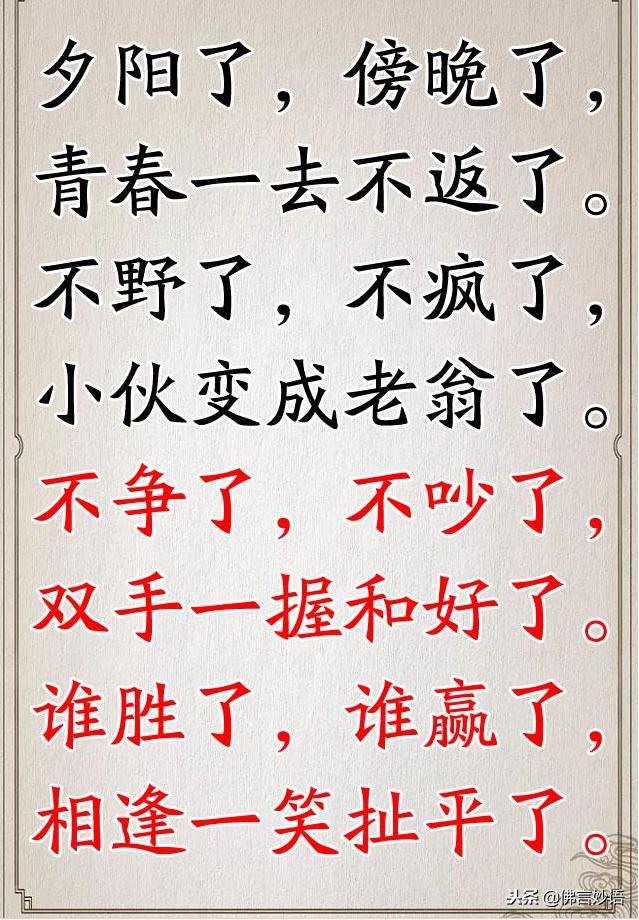 夕阳了，傍晚了，
青春一去不返了。
不野了，不疯了，
小伙变成老翁了。
不争了，不吵了，
双手一握和好了。
谁胜了，谁赢了，
相逢一笑扯平了。
头条 @佛言妙语